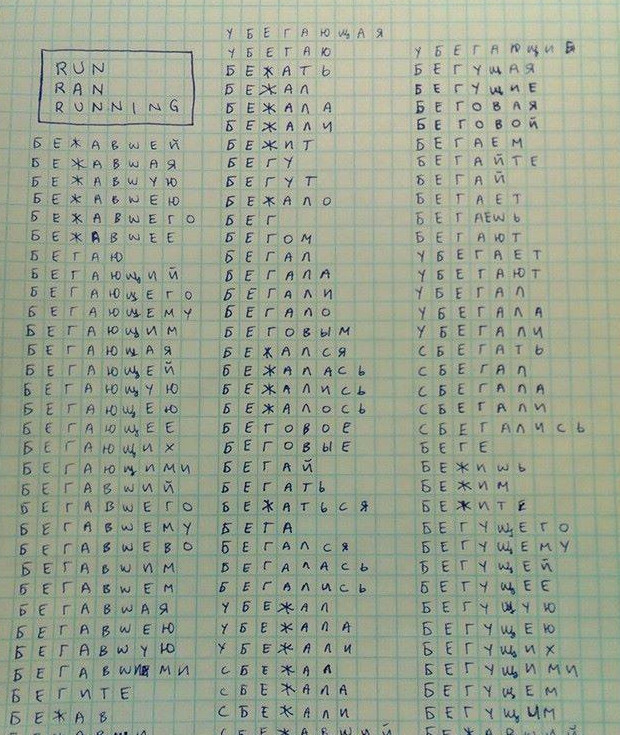 RUN
RAN
RUNNING
БЕЖАВШЕЙ
БЕЖАВШАЯ
БЕЖАВШУЮ
БЕЖАВШЕЮ
БЕЖАВШЕГО
БЕЖАВШЕЕ
БЕГАЮ
БЕГАЮЩИЙ
БЕГАЮЩЕГО
БЕГАЮЩЕМУ
БЕГАЮЩИМ
БЕГАЮЩАЯ
БЕГАЮЩЕЙ
БЕГАЮЩУЮ
БЕГАЮЩЕЮ
БЕГАЮЩЕЕ
БЕГАЮЩИХ
БЕГАЮЩИМИ
БЕГАВШИЙ
БЕГАВШЕГО
БЕГАВШЕМУ
БЕГАВШЕВО
БЕГАВШИМ
БЕГАВШЕМ
БЕГАВШАЯ
БЕГАВШЕЮ
БЕГАВШУЮ
БЕГАВШИМИ
БЕГИТЕ
БЕЖАВ
УБЕГАЮЩАЯ
УБЕГАЮ
БЕЖАТЬ
БЕЖАЛ
БЕЖАЛА
БЕЖАЛИ
БЕЖИТ
БЕГУ
БЕГУТ
БЕЖАЛО
БЕГ
БЕГОМ
БЕГАЛ
БЕГАЛА
БЕГАЛИ
БЕГАЛО
БЕГОВЫМ
БЕЖАЛСЯ
БЕЖАЛАСЬ
БЕЖАЛИСЬ
БЕЖАЛОСЬ
БЕГОВОЕ
БЕГОВЫЕ
БЕГАЙ
БЕГАТЬ
БЕЖАТЬСЯ
БЕГА
БЕГАЛСЯ
БЕГАЛАСЬ
БЕГАЛИСЬ
УБЕЖАЛ
УБЕЖАЛА
УБЕЖАЛИ
СБЕЖАЛ
СБЕЖАЛА
СБЕЖАЛИ
УБЕГАЮЩИЕ
БЕГУЩАЯ
БЕГУЩИЕ
БЕГОВАЯ
БЕГОВОЙ
БЕГАЕМ
БЕГАЙТЕ
БЕГАЙ
БЕГАЕТ
БЕГАЕШЬ
БЕГАЮТ
УБЕГАЕТ
УБЕГАЮТ
УБЕГАЛ
УБЕГАЛА
УБЕГАЛИ
СБЕГАТЬ
СБЕГАЛ
СБЕГАЛА
СБЕГАЛИ
СБЕГАЛИСЬ
БЕГЕ
БЕЖИШЬ
БЕЖИМ
БЕЖИТЕ
БЕГУЩЕГО
БЕГУЩЕМУ
БЕГУЩЕЙ
БЕГУЩЕЕ
БЕГУЩУЮ
БЕГУЩЕЮ
БЕГУЩИХ
БЕГУЩИМИ
БЕГУЩЕМ
БЕГУЩИМ